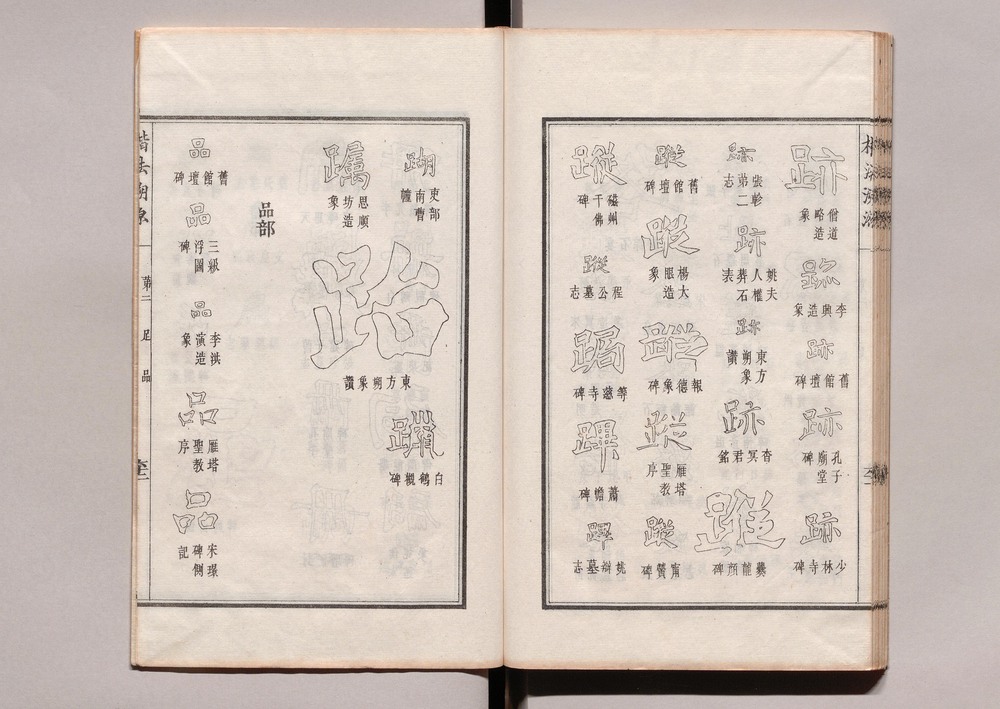 跡 僧道略造象
跡 李典造象
跡 舊館壇碑
跡 孔子廟堂碑
跡 少林寺碑
跡 張軫第二志
跡 姚夫人權葬石表
跡 東方朔象讚
跡 杳冥君銘
蹤 爨龍顏碑
蹤 舊館壇碑
蹤 楊大眼造象
蹤 報德象碑
蹤 雁塔聖教序
蹤 甯贙碑
蹤 磁州千佛碑
蹤 程公墓志
等慈寺碑
蹕 蕭憺碑
蹕 姚辯墓志
吏部南曹幢
跆 東方朔象讚
白鶴觀碑
思順坊造象
品部
品 舊館壇碑
品 三級浮圖碑
品 李洪演造象
品 雁塔聖教序
品 宋璟碑側記
楷法溯源 第二 足 品